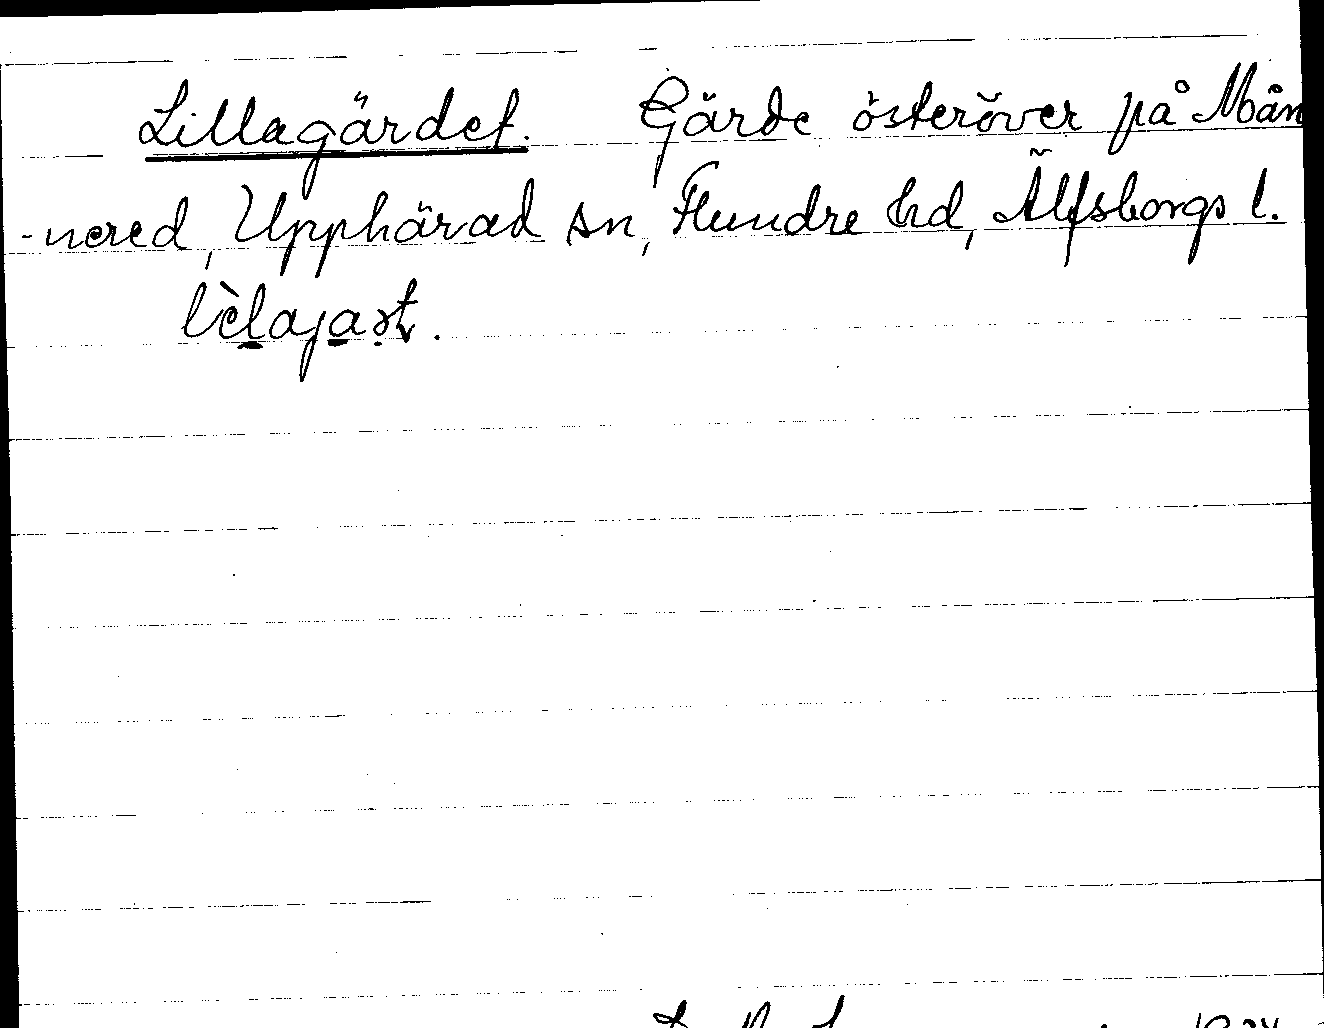 Lillagärdet. Gärde österöver på Mån
-nered, Upphärad sn, Flundre hd, Älfsborgs l.